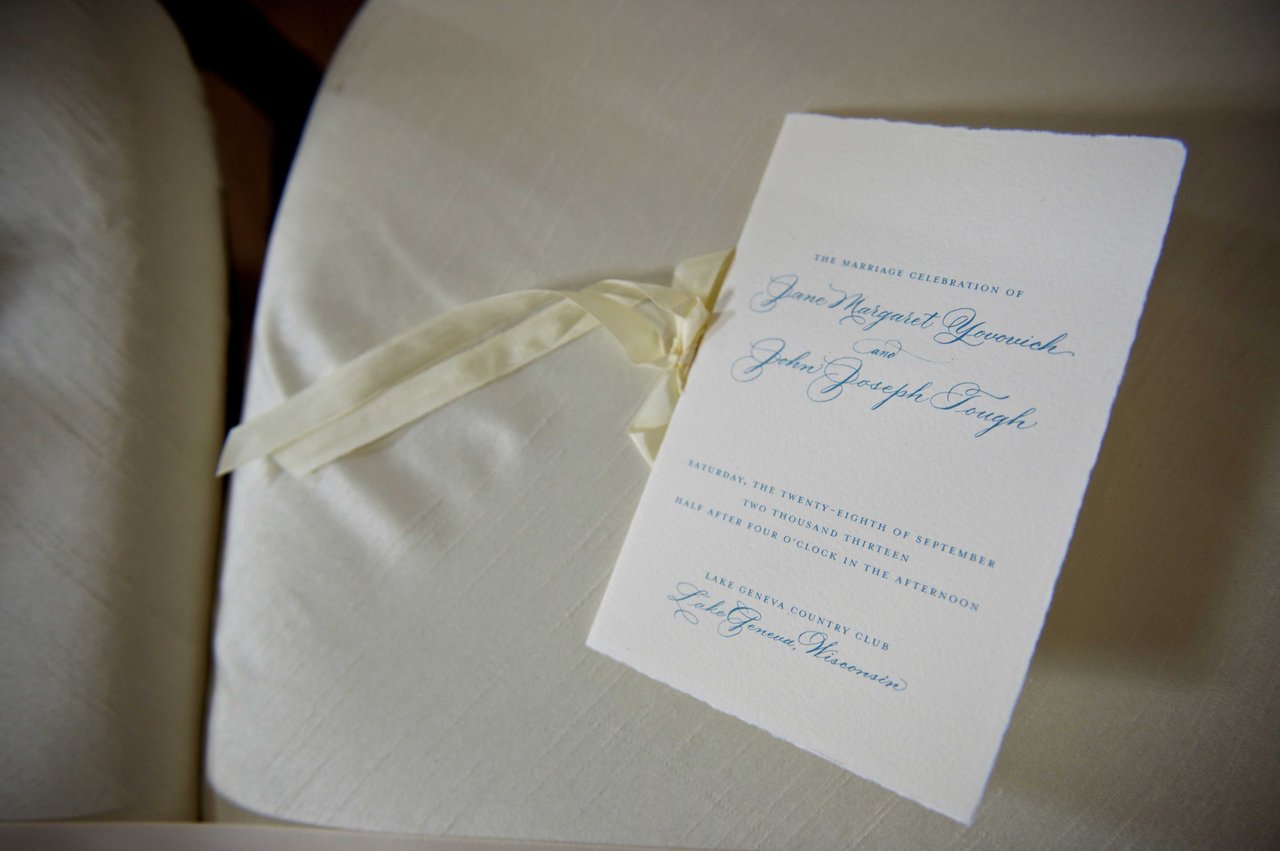 THE MARRIAGE CELEBRATION OF
Jane Margaret Yovovich
and
John Joseph Tough
SATURDAY, THE TWENTY-EIGHTH OF SEPTEMBER
TWO THOUSAND THIRTEEN
HALF AFTER FOUR O'CLOCK IN THE AFTERNOON
LAKE GENEVA COUNTRY CLUB
Lake Geneva, Wisconsin